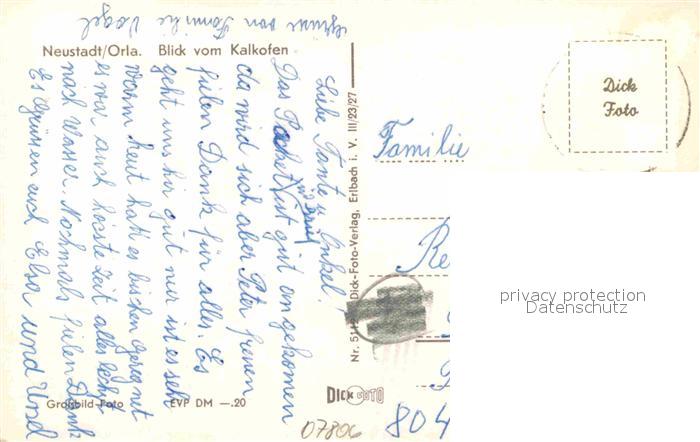 Neustadt/Orla. Blick vom Kalkofen
Liebe Tante u. Onkel!
Das Packet ist gut angekomen
und Brief
da wird sich aber Peter freuen
fielen Dank für alles. Es
geht uns hir gut nur ist es sehr
warm heut hat es bischen geregnet
es war auch höste Zeit alles lechst
nach Wasser. Nochmals fielen Dank
Es grüssen euch Elsa und
Grüsse von Familie Vogel
Großbild-Foto
EVP DM —.20
Dick-Foto-Verlag, Erlbach i. V. III/23/27
DICK FOTO
07806
Dick
Foto
Familie
804
privacy protection
Datenschutz